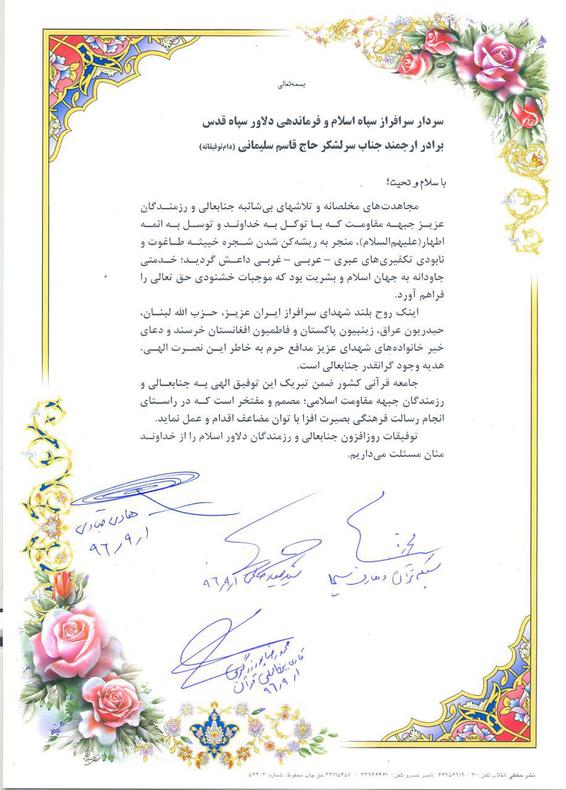 بسمه‌تعالی
سردار سرافراز سپاه اسلام و فرماندهی دلاور سپاه قدس
برادر ارجمند جناب سرلشکر حاج قاسم سلیمانی (دام‌توفیقاته)
با سلام و تحیت؛
مجاهدت‌های مخلصانه و تلاشهای بی‌شائبه جنابعالی و رزمندگان
عزیز جبهه مقاومت که با توکل به خداوند و توسل به ائمه
اطهار(علیهم‌السلام)، منجر به ریشه‌کن شدن شجره خبیثه طاغوت و
نابودی تکفیری‌های عبری – عربی – غربی داعش گردید؛ خدمتی
جاودانه به جهان اسلام و بشریت بود که موجبات خشنودی حق تعالی را
فراهم آورد.
اینک روح بلند شهدای سرافراز ایران عزیز، حزب الله لبنان،
حیدریون عراق، زینبیون پاکستان و فاطمیون افغانستان خرسند و دعای
خیر خانواده‌های شهدای عزیز مدافع حرم به خاطر این نصرت الهی،
هدیه وجود گرانقدر جنابعالی است.
جامعه قرآنی کشور ضمن تبریک این توفیق الهی به جنابعالی و
رزمندگان جبهه مقاومت اسلامی؛ مصمم و مفتخر است که در راستای
انجام رسالت فرهنگی بصیرت افزا با توان مضاعف اقدام و عمل نماید.
توفیقات روزافزون جنابعالی و رزمندگان دلاور اسلام را از خداوند
منان مسئلت می‌داریم.
۹۶/۹/۱
شبکه قرآن و معارف سیما
۹۶/۹/۱
قرآن
۹۶/۹/۱